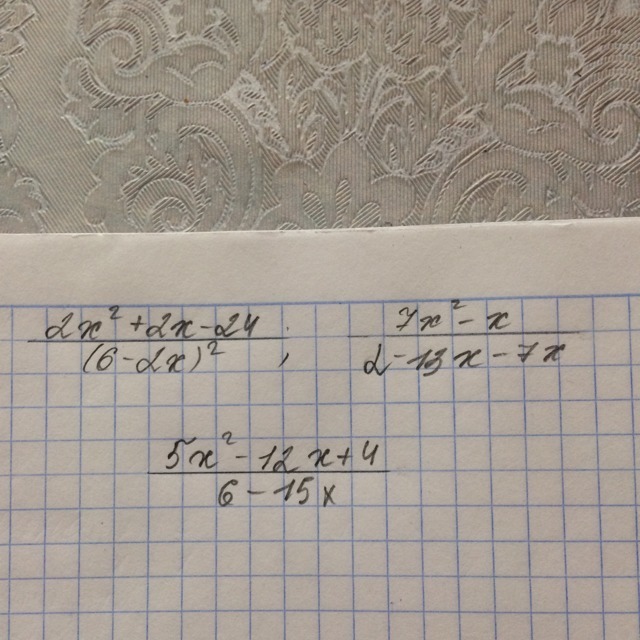 2x² + 2x - 24 / (6 - 2x)² ,
7x² - x / 2 - 13x - 7x
5x² - 12x + 4 / 6 - 15x